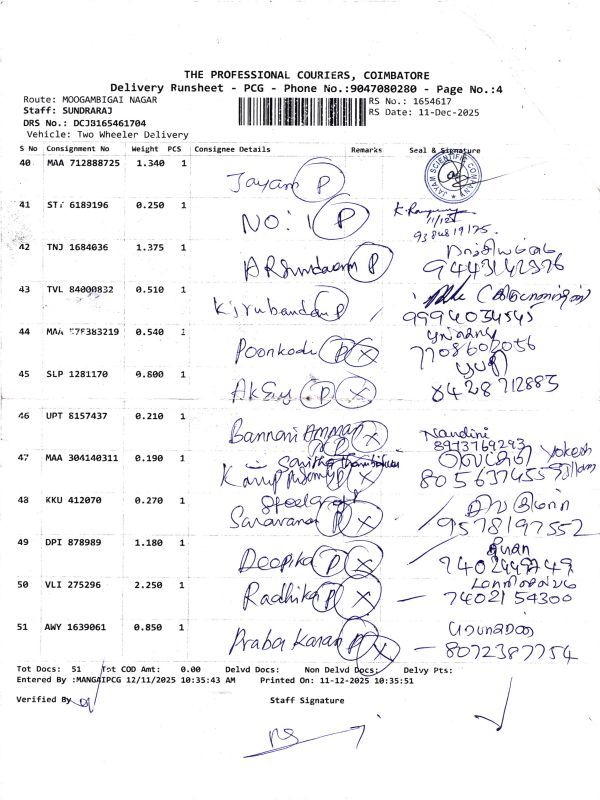 THE PROFESSIONAL COURIERS, COIMBATORE
Delivery Runsheet - PCG - Phone No.:9047080280 - Page No.:4
Route: MOOGAMBIGAI NAGAR RS No.: 1654617
Staff: SUNDRARAJ RS Date: 11-Dec-2025
DRS No.: DCJB165461704
Vehicle: Two Wheeler Delivery
S No Consignment No Weight PCS Consignee Details Remarks Seal & Signature
40 MAA 712888725 1.340 1
Jayam P
41 6189196 0.250 1
NO: 1 P
9384819175.
42 TNJ 1684036 1.375 1
ARSundaram P 9443142576
43 TVL 84000832 0.510 1
Kirubandan P 9994034545
44 MAA 383219 0.540 1
Poonkodi P X 7708602056
45 SLP 1281170 0.800 1
P X 8428712883
46 UPT 8157437 0.210 1
Bannari Amman P X Nandini
8973769293
47 MAA 304140311 0.190 1
P X Yokesh
8056374555
48 KKU 412070 0.270 1
Saravana P X 9578197552
49 DPI 878989 1.180 1
Deepika P X
50 VLI 275296 2.250 1
Radhika P X 7402154300
51 AWY 1639061 0.850 1
Praba Karan P X 8072387754
Tot Docs: 51 Tot COD Amt: 0.00 Delvd Docs: Non Delvd Docs: Delvy Pts:
Entered By :MANGAIPCG 12/11/2025 10:35:43 AM Printed On: 11-12-2025 10:35:51
Verified By Staff Signature